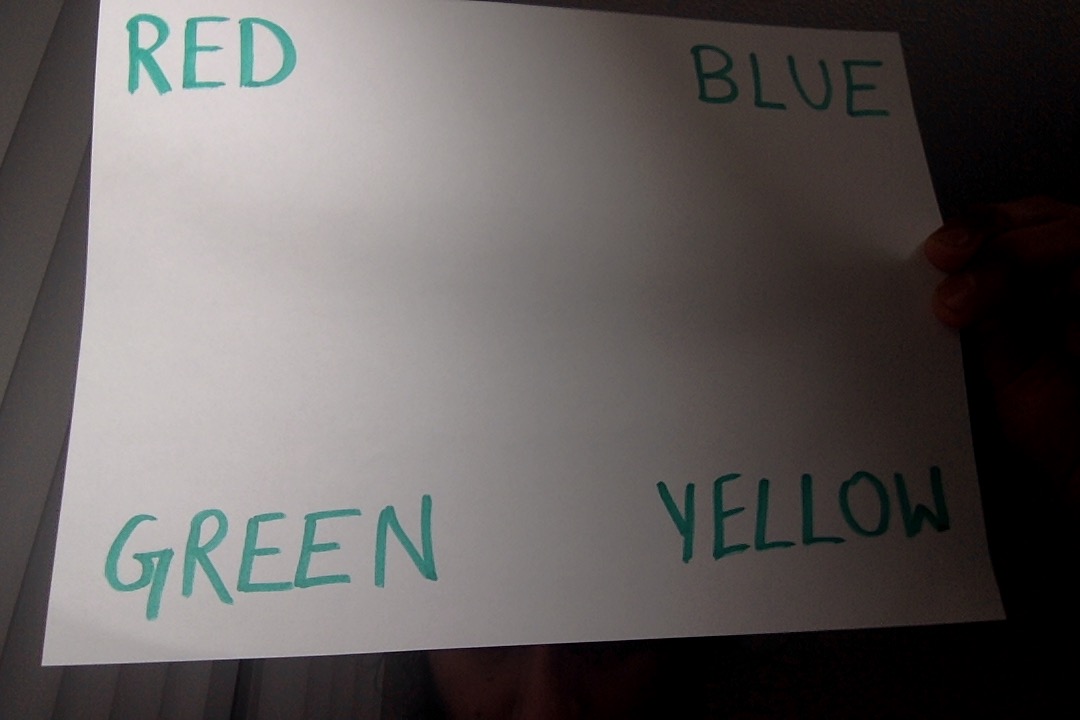 RED BLUE
GREEN YELLOW